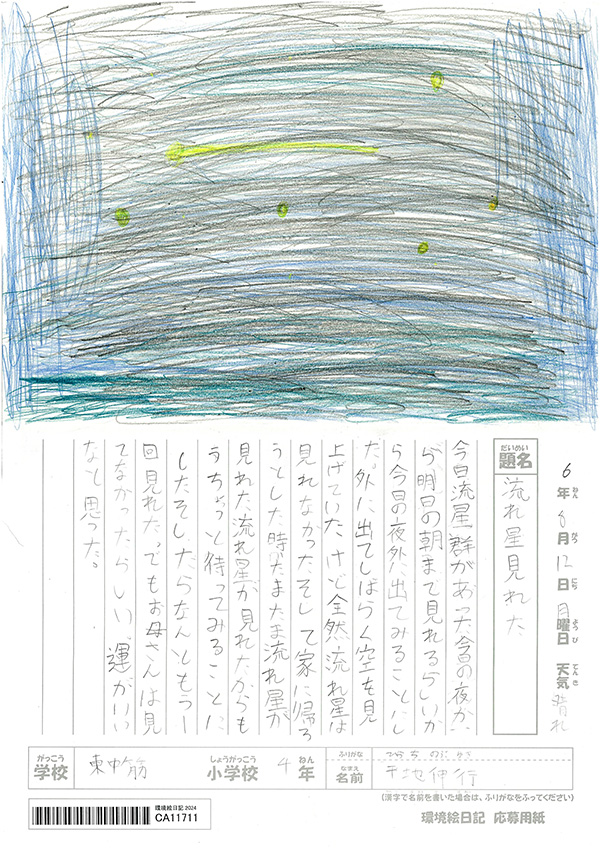 6年ねん8月がつ12日にち月曜日ようび 天気てんき晴れ
だいめい
題名
流れ星見れた
今日流星群があった。今日の夜か
ら明日の朝まで見れるらしいか
ら今日の夜外に出てみることにし
た。外に出てしばらく空を見
上げていた。けど全然流れ星は
見れなかった。そして家に帰ろ
うとした時たまたま流れ星が
見れた。流れ星が見れたからも
うちょっと待ってみることに
したそしたらなんともう一
回見れた。でもお母さんは見
てなかったらしい、運がいい
なと思った。
がっこう
学校
東中筋
しょうがっこう
小学校
4
ねん
年
ふりがな
なまえ
名前
平地伸行
(漢字で名前を書いた場合は、ふりがなをふってください)
環境絵日記 2024
CA11711
環境絵日記 応募用紙